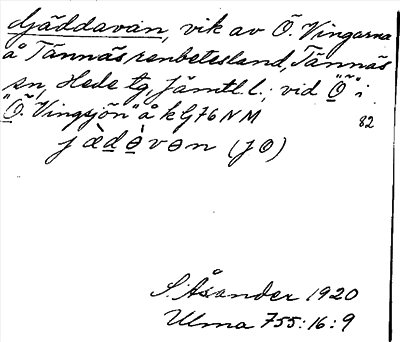 Gäddavan, vik av Ö. Vingarna
å Tännäs renbetesland, Tännäs
sn, Hede tg, Jämtl. l.; vid "Ö" i
"Ö. Vingsjön" å k G76 NM 82
jæ̀də̀vən (JO)
S. Åsander 1920
Ulma 755:16:9